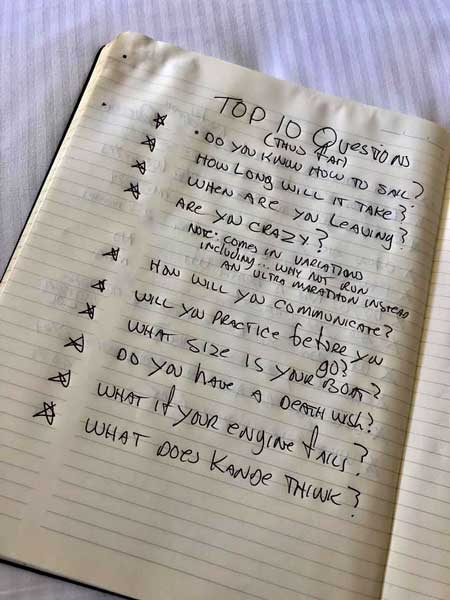 TOP 10 QUESTIONS
(THUS FAR)
DO YOU KNOW HOW TO SAIL?
HOW LONG WILL IT TAKE?
WHEN ARE YOU LEAVING?
ARE YOU CRAZY?
NOTE: COMES IN VARIATIONS
INCLUDING: WHY NOT RUN
AN ULTRA MARATHON INSTEAD
HOW WILL YOU COMMUNICATE?
WILL YOU PRACTICE BEFORE YOU
GO?
WHAT SIZE IS YOUR BOAT?
DO YOU HAVE A DEATH WISH?
WHAT IF YOUR ENGINE FAILS?
WHAT DOES KANOE THINK?